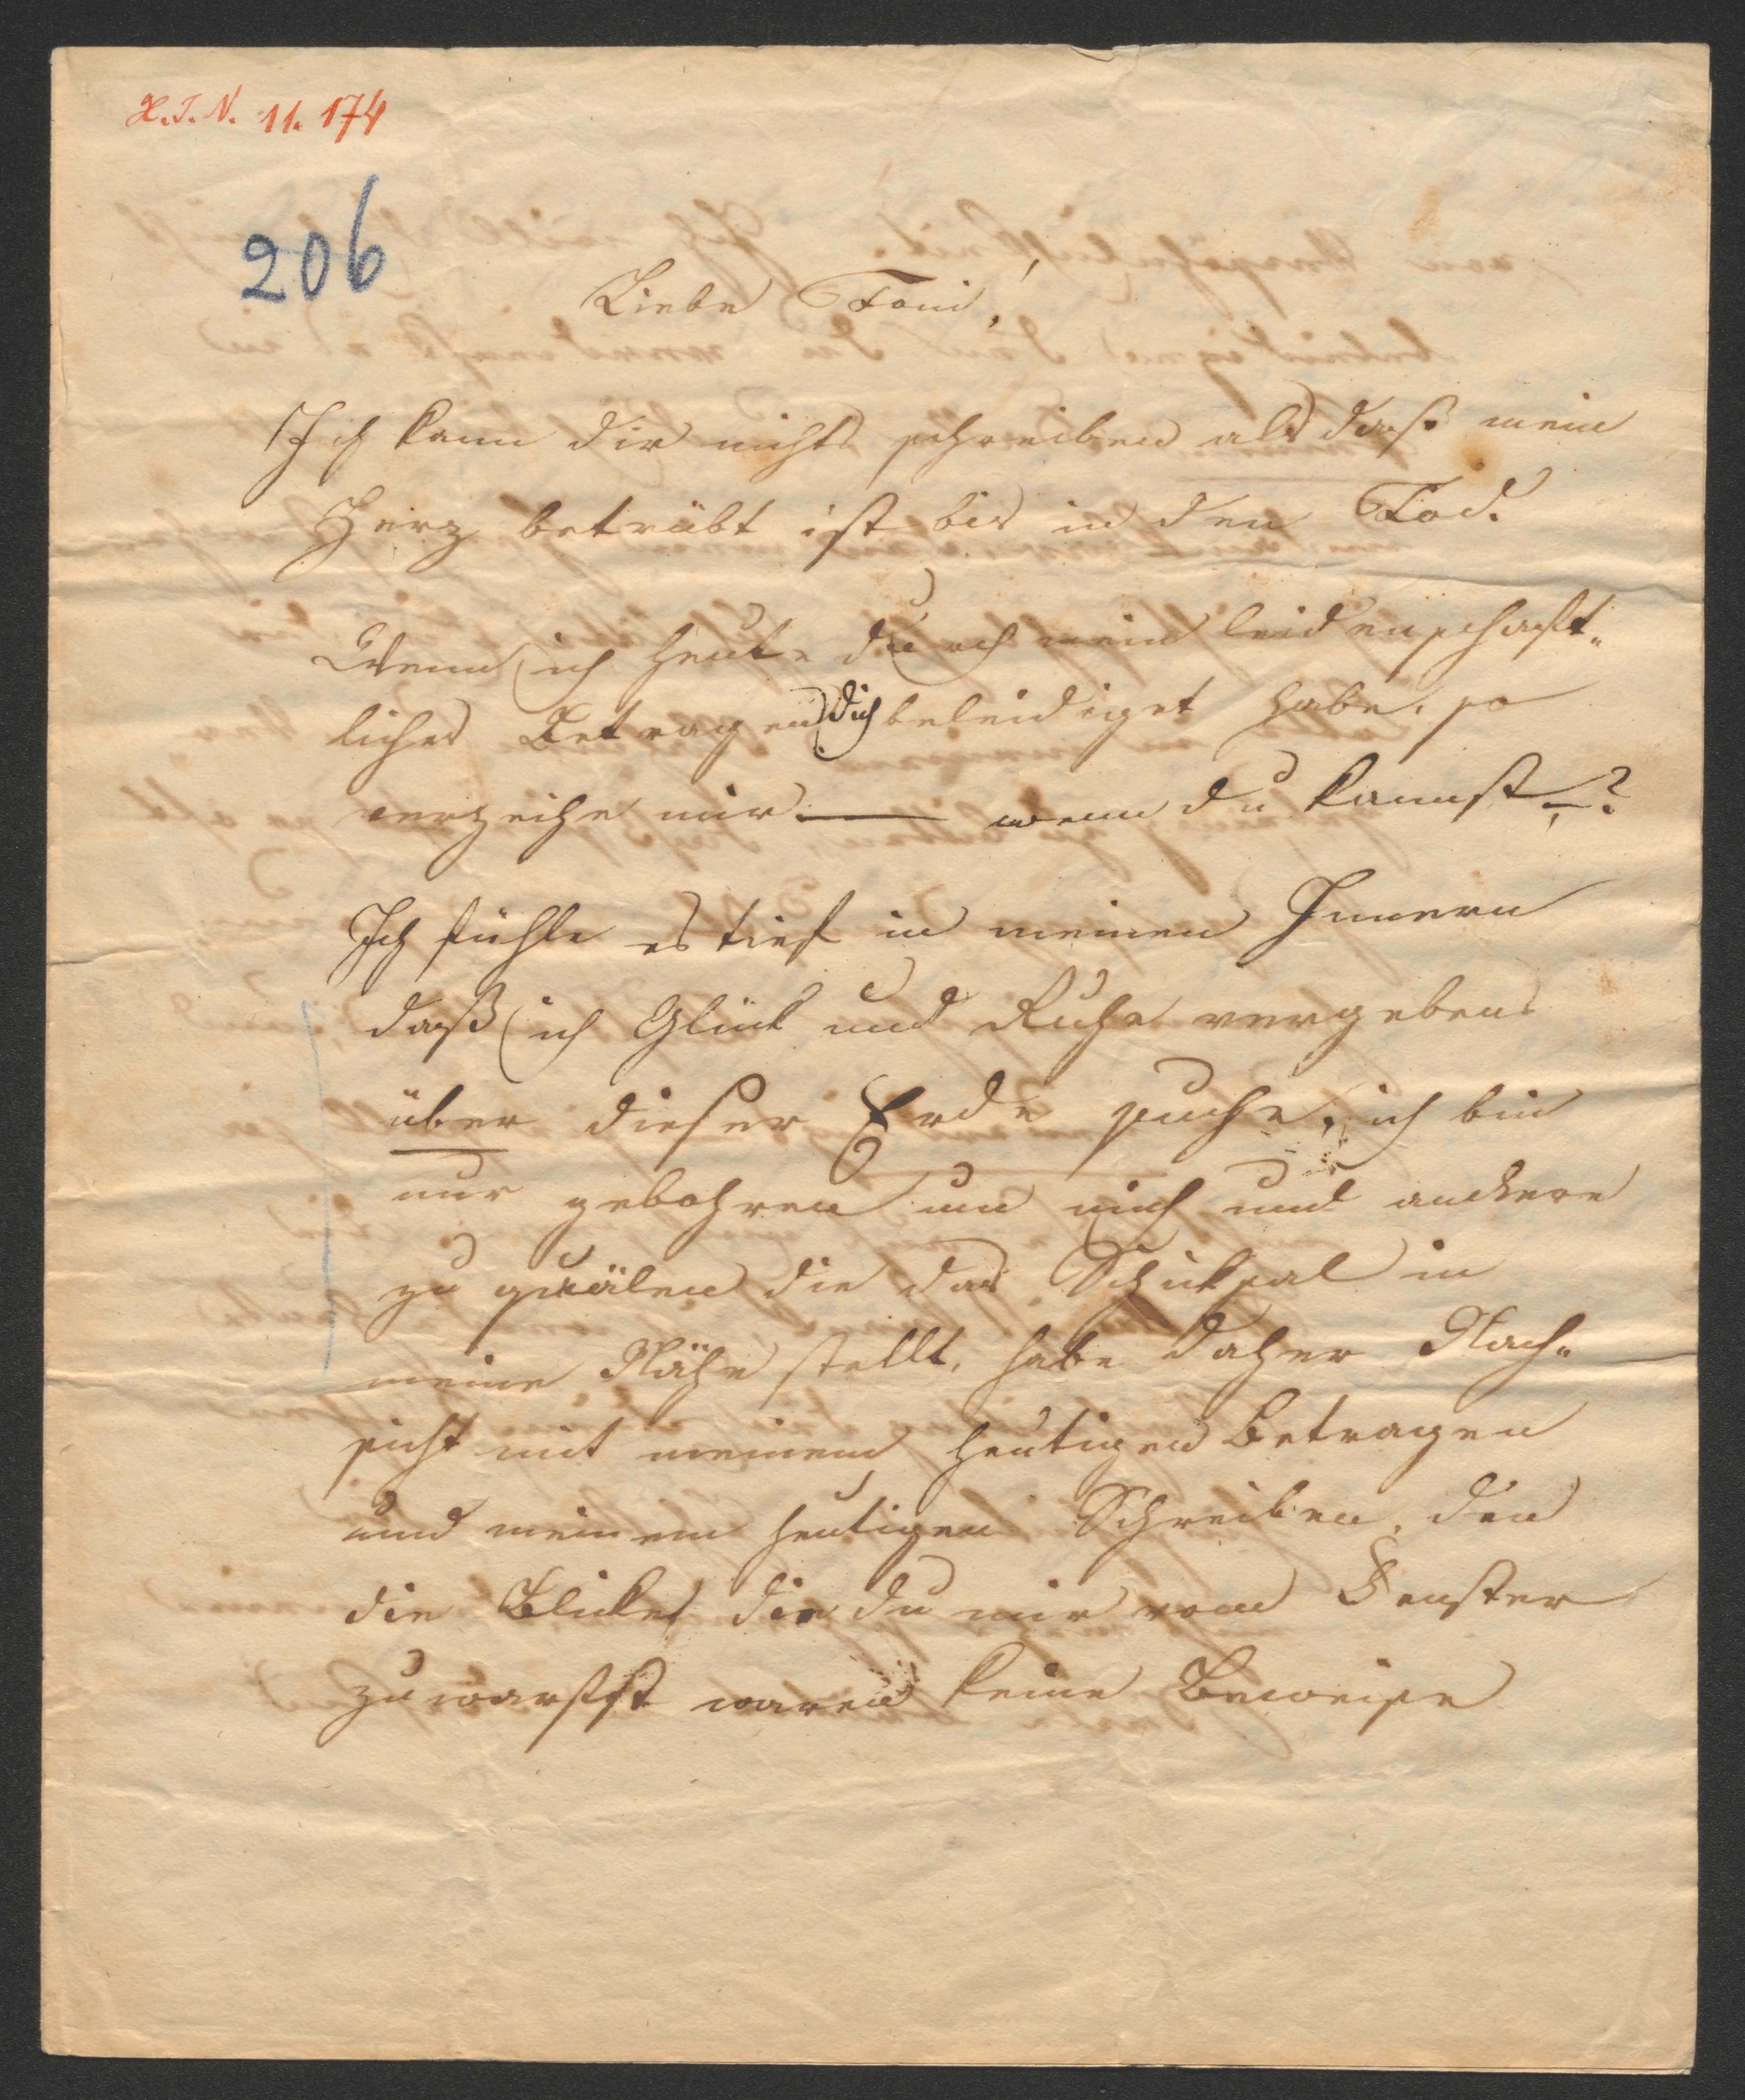 H.I.N. 11.174
206
Liebe Toni!
Ich kann dir nichts schreiben als daß mein
Herz betrübt ist bis in den Tod.
Wenn ich heute durch mein leidenschaft„
liches Betragen dich beleidiget habe, so
verzeihe mir — wenn du kannst —?
Ich fühle es tief in meinen Innern
daß ich Glük und Ruhe vergebens
über dieser Erde suche, ich bin
nur gebohren um mich und andere
zu quälen die das Schiksal in
meine Nähe stellt, habe daher Nach„
sicht mit meinem heutigen Betragen
und meinem heutigen Schreiben, den
die Blicke die du mir vom Fenster
zuwarfst waren keine Beweise